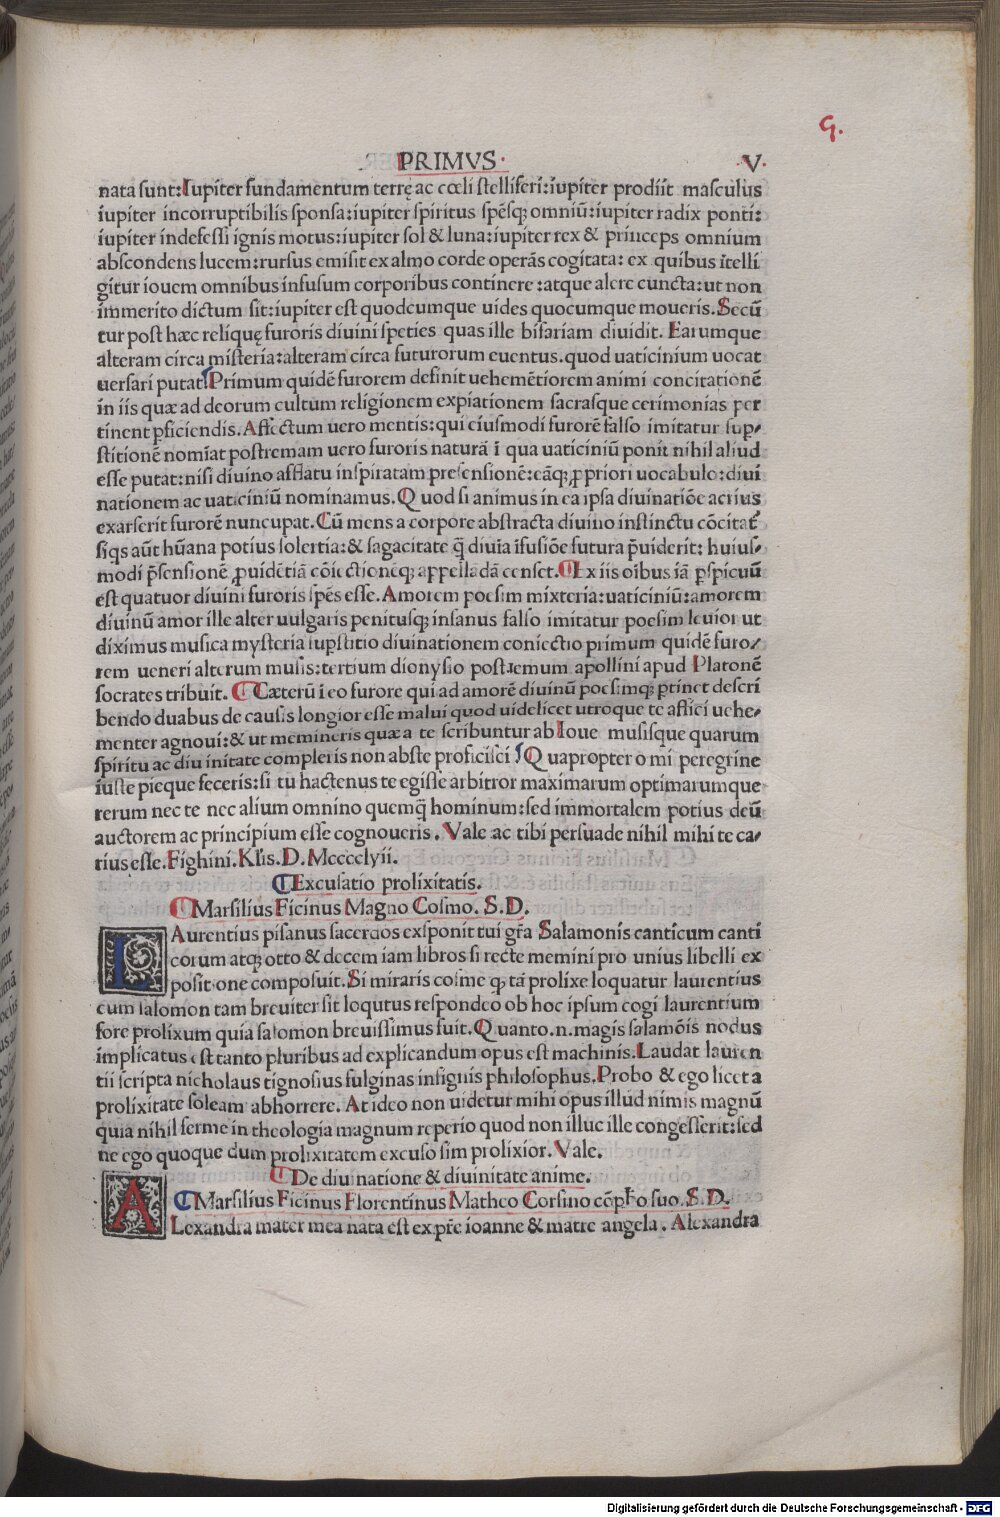 G.
PRIMVS· ·V·
nata sunt:Iupiter fundamentum terrę ac cœli stelliferi:iupiter prodiit masculus
iupiter incorruptibilis sponsa:iupiter spiritus spẽsq; omniũ:iupiter radix ponti:
iupiter indefessi ignis motus:iupiter sol & luna:iupiter rex & princeps omnium
abscondens lucem:rursus emisit ex almo corde operãs cogitata: ex quibus ĩtelli
gitur iouem omnibus infusum corporibus continere :atque alere cuncta:ut non
immerito dictum sit:iupiter est quodcumque uides quocumque moueris.Secũ
tur post hæc reliquę furoris diuini speties quas ille bifariam diuidit. Earumque
alteram circa misteria:alteram circa futurorum euentus.quod uaticinium uocat
uersari putat.Primum quidẽ furorem definit uehemẽtiorem animi concitationẽ
in iis quæ ad deorum cultum religionem expiationem sacrasque cerimonias per
tinent ꝑficiendis.Affectum uero mentis:qui eiusmodi furorẽ falso imitatur sup̱⸗
stitionẽ nomĩat postremam uero furoris naturã ĩ qua uaticiniũ ponit nihil aliud
esse putat:nisi diuino afflatu inspiratam presensionẽ:eãq; ꝓpriori uocabulo:diui
nationem ac uaticiniũ nominamus.Quod si animus in ea ipsa diuinatiõe acrius
exarserit furorẽ nuncupat.Cũ mens a corpore abstracta diuino instinctu cõcitat̃
siqs aũt hũana potius solertia:& sagacitate q̃ diuĩa ĩfusiõe futura p̃uiderit: huius⸗
modi p̃sensionẽ ꝓuidẽtiã cõiectioneq; appelladã censet.¶Ex iis oĩbus iã ꝑspicuũ
est quatuor diuini furoris spẽs esse.Amorem poesim mixteria:uaticiniũ:amorem
diuinũ amor ille alter uulgaris penitusq; insanus falso imitatur poesim leuior ut
diximus musica mysteria supstitio diuinationem coniectio primum quidẽ furo⸗
rem ueneri alterum musis:tertium dionysio postremum apollini apud Platonẽ
socrates tribuit. ¶Cæterũ ĩ eo furore qui ad amorẽ diuinũ poesimq; ꝑtinet descri
bendo duabus de causis longior esse malui quod uidelicet utroque te affici uehe⸗
menter agnoui:& ut memineris quæ a te scribuntur ab Ioue musisque quarum
spiritu ac diuinitate compleris non abste proficisci Quapropter o mi peregrine
iuste pieque feceris:si tu hactenus te egisse arbitror maximarum optimarumque
rerum nec te nec alium omnino quemq̃ hominum:sed immortalem potius deũ
auctorem ac principium esse cognoueris. Vale ac tibi persuade nihil mihi te ca⸗
rius esse.Fighini.Kl̃is.D.Mcccclyii.
¶Excusatio prolixitatis.
¶Marsilius Ficinus Magno Cosmo. S.D.
LAurentius pisanus sacerdos exponit tui gr̃a Salamonis canticum canti
corum atq; otto & decem iam libros si recte memini pro unius libelli ex
positione composuit.Si miraris cosme q; tã prolixe loquatur laurentius
cum salomon tam breuiter sit loqutus respondeo ob hoc ipsum cogi laurentium
fore prolixum quia salomon breuissimus fuit.Quanto.n.magis salamõis nodus
implicatus est tanto pluribus ad explicandum opus est machinis.Laudat lauren
tii scripta nicholaus tignosius fulginas insignis philosophus.Probo & ego licet a
prolixitate soleam abhorrere. At ideo non uidetur mihi opus illud nimis magnũ
quia nihil ferme in theologia magnum reperio quod non illuc ille congesserit:sed
ne ego quoque dum prolixitatem excuso sim prolixior.Vale.
¶De diuinatione & diuinitate anime.
¶Marsilius Ficinus Florentinus Matheo Corsino cõp̃ro suo.S.D.
ALexandra mater mea nata est ex pr̃e ioanne & matre angela. Alexandra
Digitalisierung gefördert durch die Deutsche Forschungsgemeinschaft - DFG